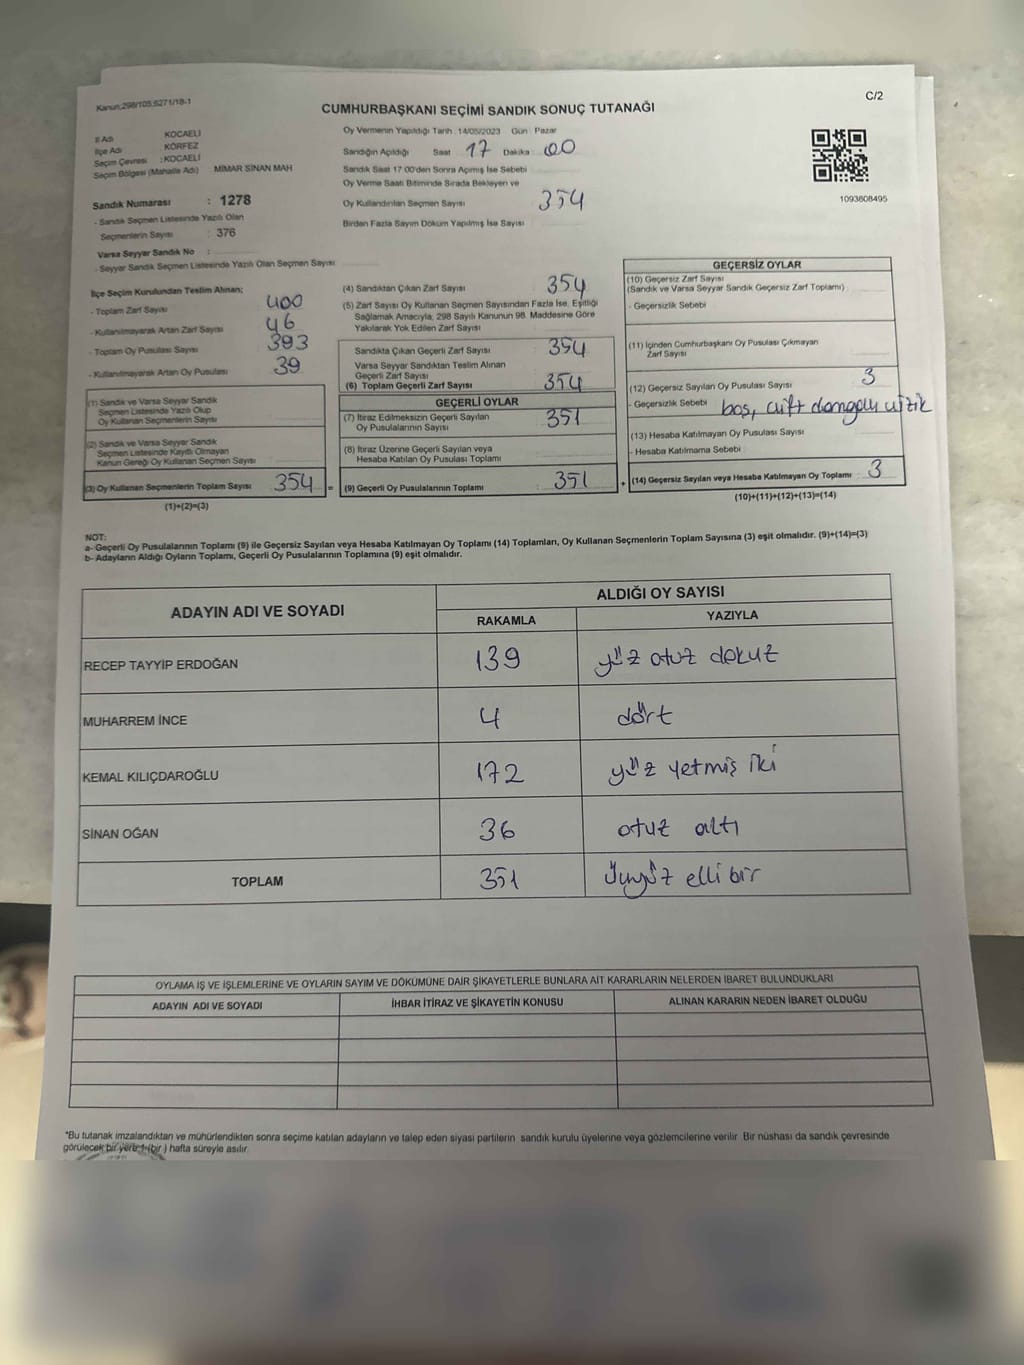 Kanun;298/105;6271/18-1
C/2
CUMHURBAŞKANI SEÇİMİ SANDIK SONUÇ TUTANAĞI
İl Adı KOCAELİ
İlçe Adı KÖRFEZ
Seçim Çevresi : KOCAELİ
Seçim Bölgesi (Mahalle Adı) MİMAR SİNAN MAH
Sandık Numarası : 1278
- Sandık Seçmen Listesinde Yazılı Olan
Seçmenlerin Sayısı : 376
Varsa Seyyar Sandık No :
- Seyyar Sandık Seçmen Listesinde Yazılı Olan Seçmen Sayısı
Oy Vermenin Yapıldığı Tarih : 14/05/2023 Gün : Pazar
Sandığın Açıldığı Saat 17 Dakika 00
Sandık Saat 17 00'den Sonra Açılmış İse Sebebi
Oy Verme Saati Bitiminde Sırada Bekleyen ve
Oy Kullandırılan Seçmen Sayısı 354
Birden Fazla Sayım Döküm Yapılmış İse Sayısı :
1093808495
İlçe Seçim Kurulundan Teslim Alınan;
- Toplam Zarf Sayısı 400
- Kullanılmayarak Artan Zarf Sayısı 46
- Toplam Oy Pusulası Sayısı 393
- Kullanılmayarak Artan Oy Pusulası 39
(1) Sandık ve Varsa Seyyar Sandık
Seçmen Listesinde Yazılı Olup
Oy Kullanan Seçmenlerin Sayısı
(2) Sandık ve Varsa Seyyar Sandık
Seçmen Listesinde Kayıtlı Olmayan
Kanun Gereği Oy Kullanan Seçmen Sayısı
(3) Oy Kullanan Seçmenlerin Toplam Sayısı 354 =
(1)+(2)=(3)
(4) Sandıktan Çıkan Zarf Sayısı 354
(5) Zarf Sayısı Oy Kullanan Seçmen Sayısından Fazla İse, Eşitliği
Sağlamak Amacıyla, 298 Sayılı Kanunun 98. Maddesine Göre
Yakılarak Yok Edilen Zarf Sayısı
Sandıkta Çıkan Geçerli Zarf Sayısı 354
Varsa Seyyar Sandıktan Teslim Alınan
Geçerli Zarf Sayısı
(6) Toplam Geçerli Zarf Sayısı 354
GEÇERLİ OYLAR
(7) İtiraz Edilmeksizin Geçerli Sayılan
Oy Pusulalarının Sayısı 351
(8) İtiraz Üzerine Geçerli Sayılan veya
Hesaba Katılan Oy Pusulası Toplamı
(9) Geçerli Oy Pusulalarının Toplamı : 351 +
GEÇERSİZ OYLAR
(10) Geçersiz Zarf Sayısı
(Sandık ve Varsa Seyyar Sandık Geçersiz Zarf Toplamı)
- Geçersizlik Sebebi
(11) İçinden Cumhurbaşkanı Oy Pusulası Çıkmayan
Zarf Sayısı
(12) Geçersiz Sayılan Oy Pusulası Sayısı 3
- Geçersizlik Sebebi boş, çift damgalı
(13) Hesaba Katılmayan Oy Pusulası Sayısı
- Hesaba Katılmama Sebebi
(14) Geçersiz Sayılan veya Hesaba Katılmayan Oy Toplamı : 3
(10)+(11)+(12)+(13)=(14)
NOT:
a- Geçerli Oy Pusulalarının Toplamı (9) ile Geçersiz Sayılan veya Hesaba Katılmayan Oy Toplamı (14) Toplamları, Oy Kullanan Seçmenlerin Toplam Sayısına (3) eşit olmalıdır. (9)+(14)=(3)
b- Adayların Aldığı Oyların Toplamı, Geçerli Oy Pusulalarının Toplamına (9) eşit olmalıdır.
ADAYIN ADI VE SOYADI ALDIĞI OY SAYISI
RAKAMLA YAZIYLA
RECEP TAYYİP ERDOĞAN 139 yüz otuz dokuz
MUHARREM İNCE 4 dört
KEMAL KILIÇDAROĞLU 172 yüz yetmiş iki
SİNAN OĞAN 36 otuz altı
TOPLAM 351 üçyüz elli bir
OYLAMA İŞ VE İŞLEMLERİNE VE OYLARIN SAYIM VE DÖKÜMÜNE DAİR ŞİKAYETLERLE BUNLARA AİT KARARLARIN NELERDEN İBARET BULUNDUKLARI
ADAYIN ADI VE SOYADI İHBAR İTİRAZ VE ŞİKAYETİN KONUSU ALINAN KARARIN NEDEN İBARET OLDUĞU
*Bu tutanak imzalandıktan ve mühürlendikten sonra seçime katılan adayların ve talep eden siyasi partilerin sandık kurulu üyelerine veya gözlemcilerine verilir. Bir nüshası da sandık çevresinde
görülecek bir yere 1 (bir ) hafta süreyle asılır.